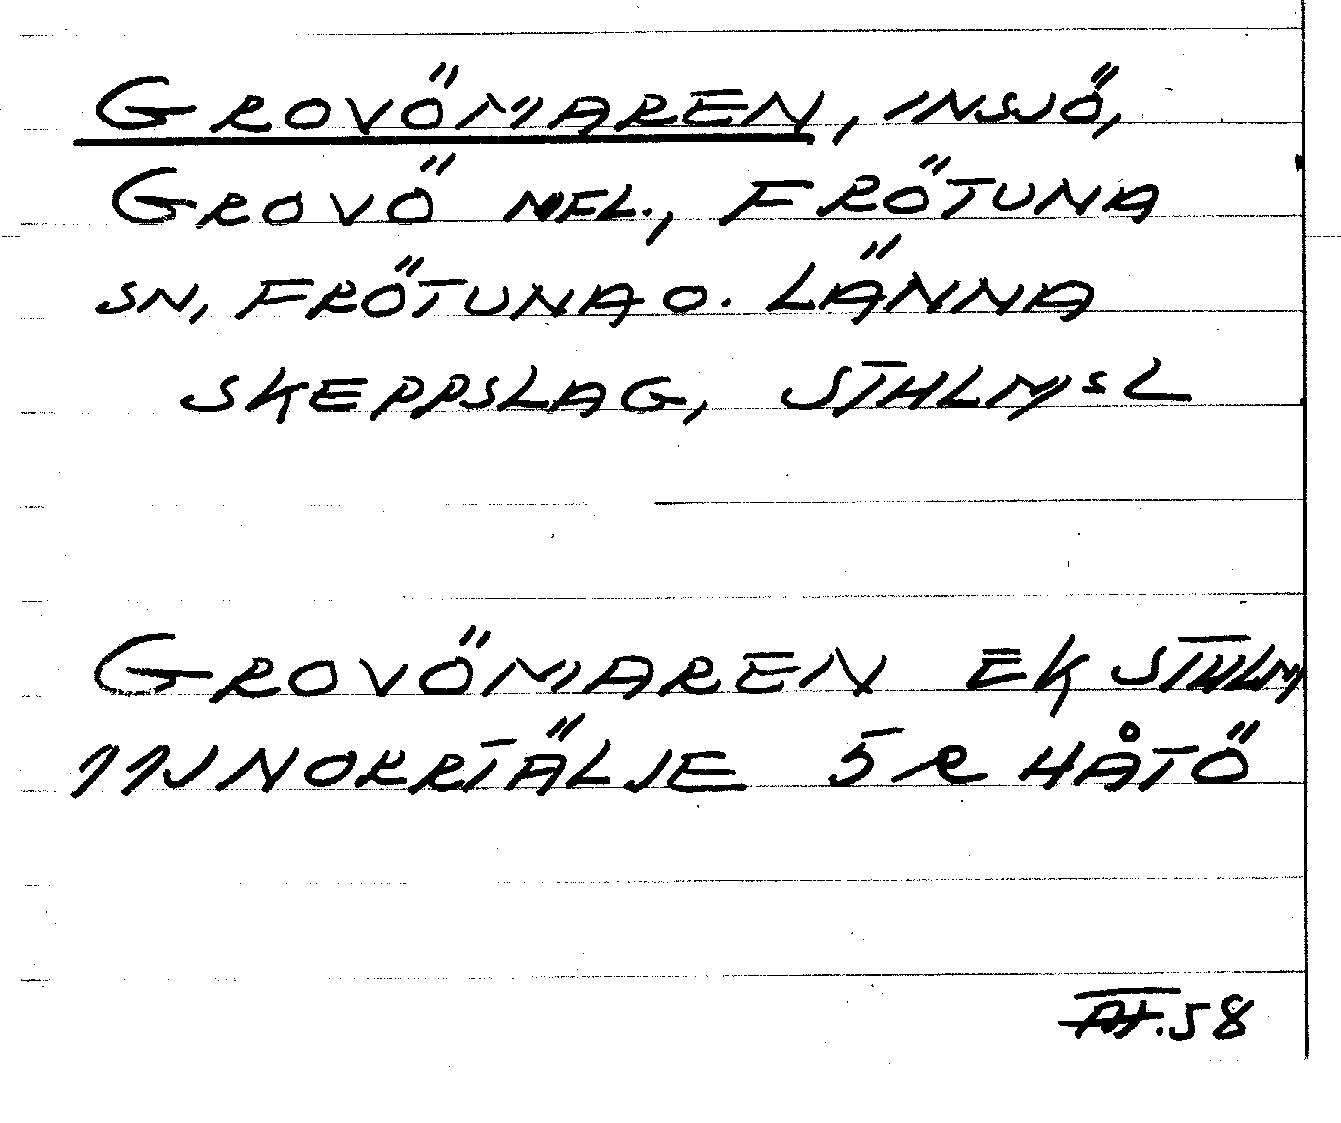 GROVÖMAREN, INSJÖ,
GROVÖ MFL., FRÖTUNA
SN, FRÖTUNA O. LÄNNA
SKEPPSLAG, STHLMS L
GROVÖMAREN EK STHLM
11J NORRTÄLJE 5R HÅTÖ
58